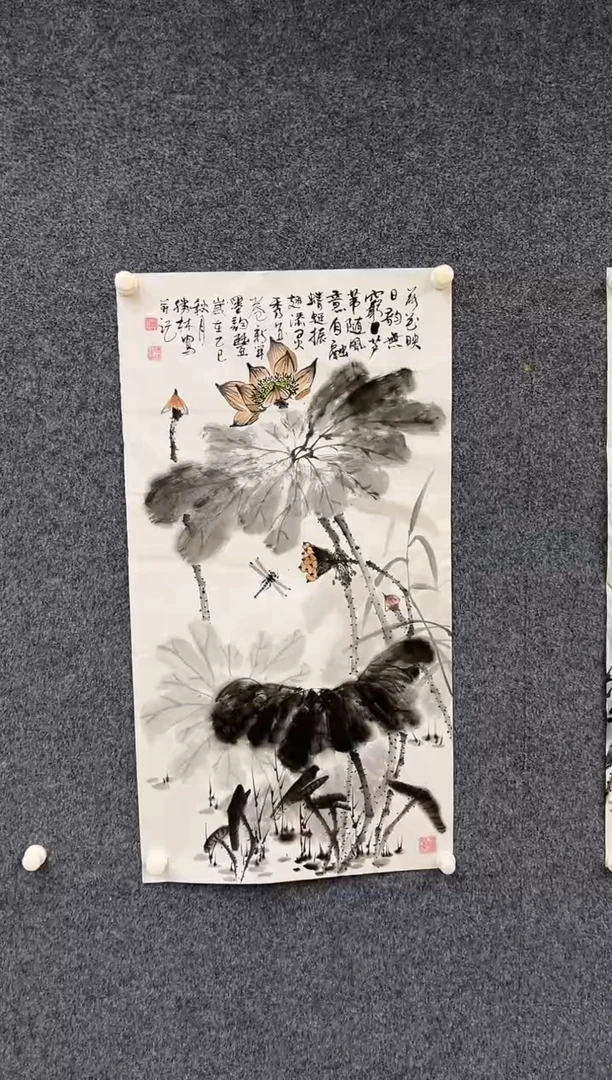 荷花映
日韵无
穷 芦
苇随风
意自融
蜻蜓振
翅添灵
秀
卷新
墨韵
岁在乙巳
秋月
林写
并记